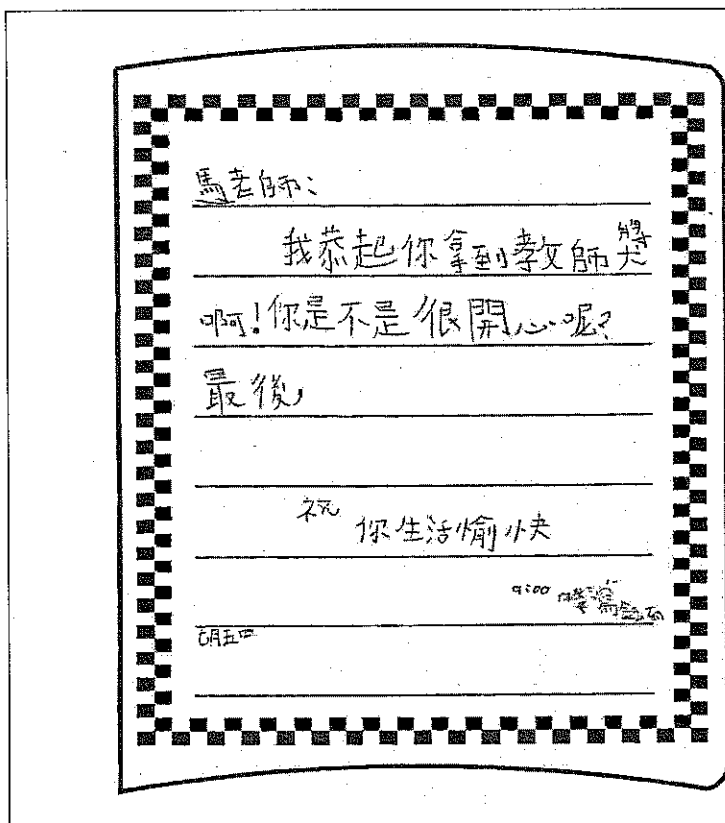 馬老師：
我恭起你拿到教師獎
啊！你是不是很開心呢？
最後，
祝
你生活愉快
9:00